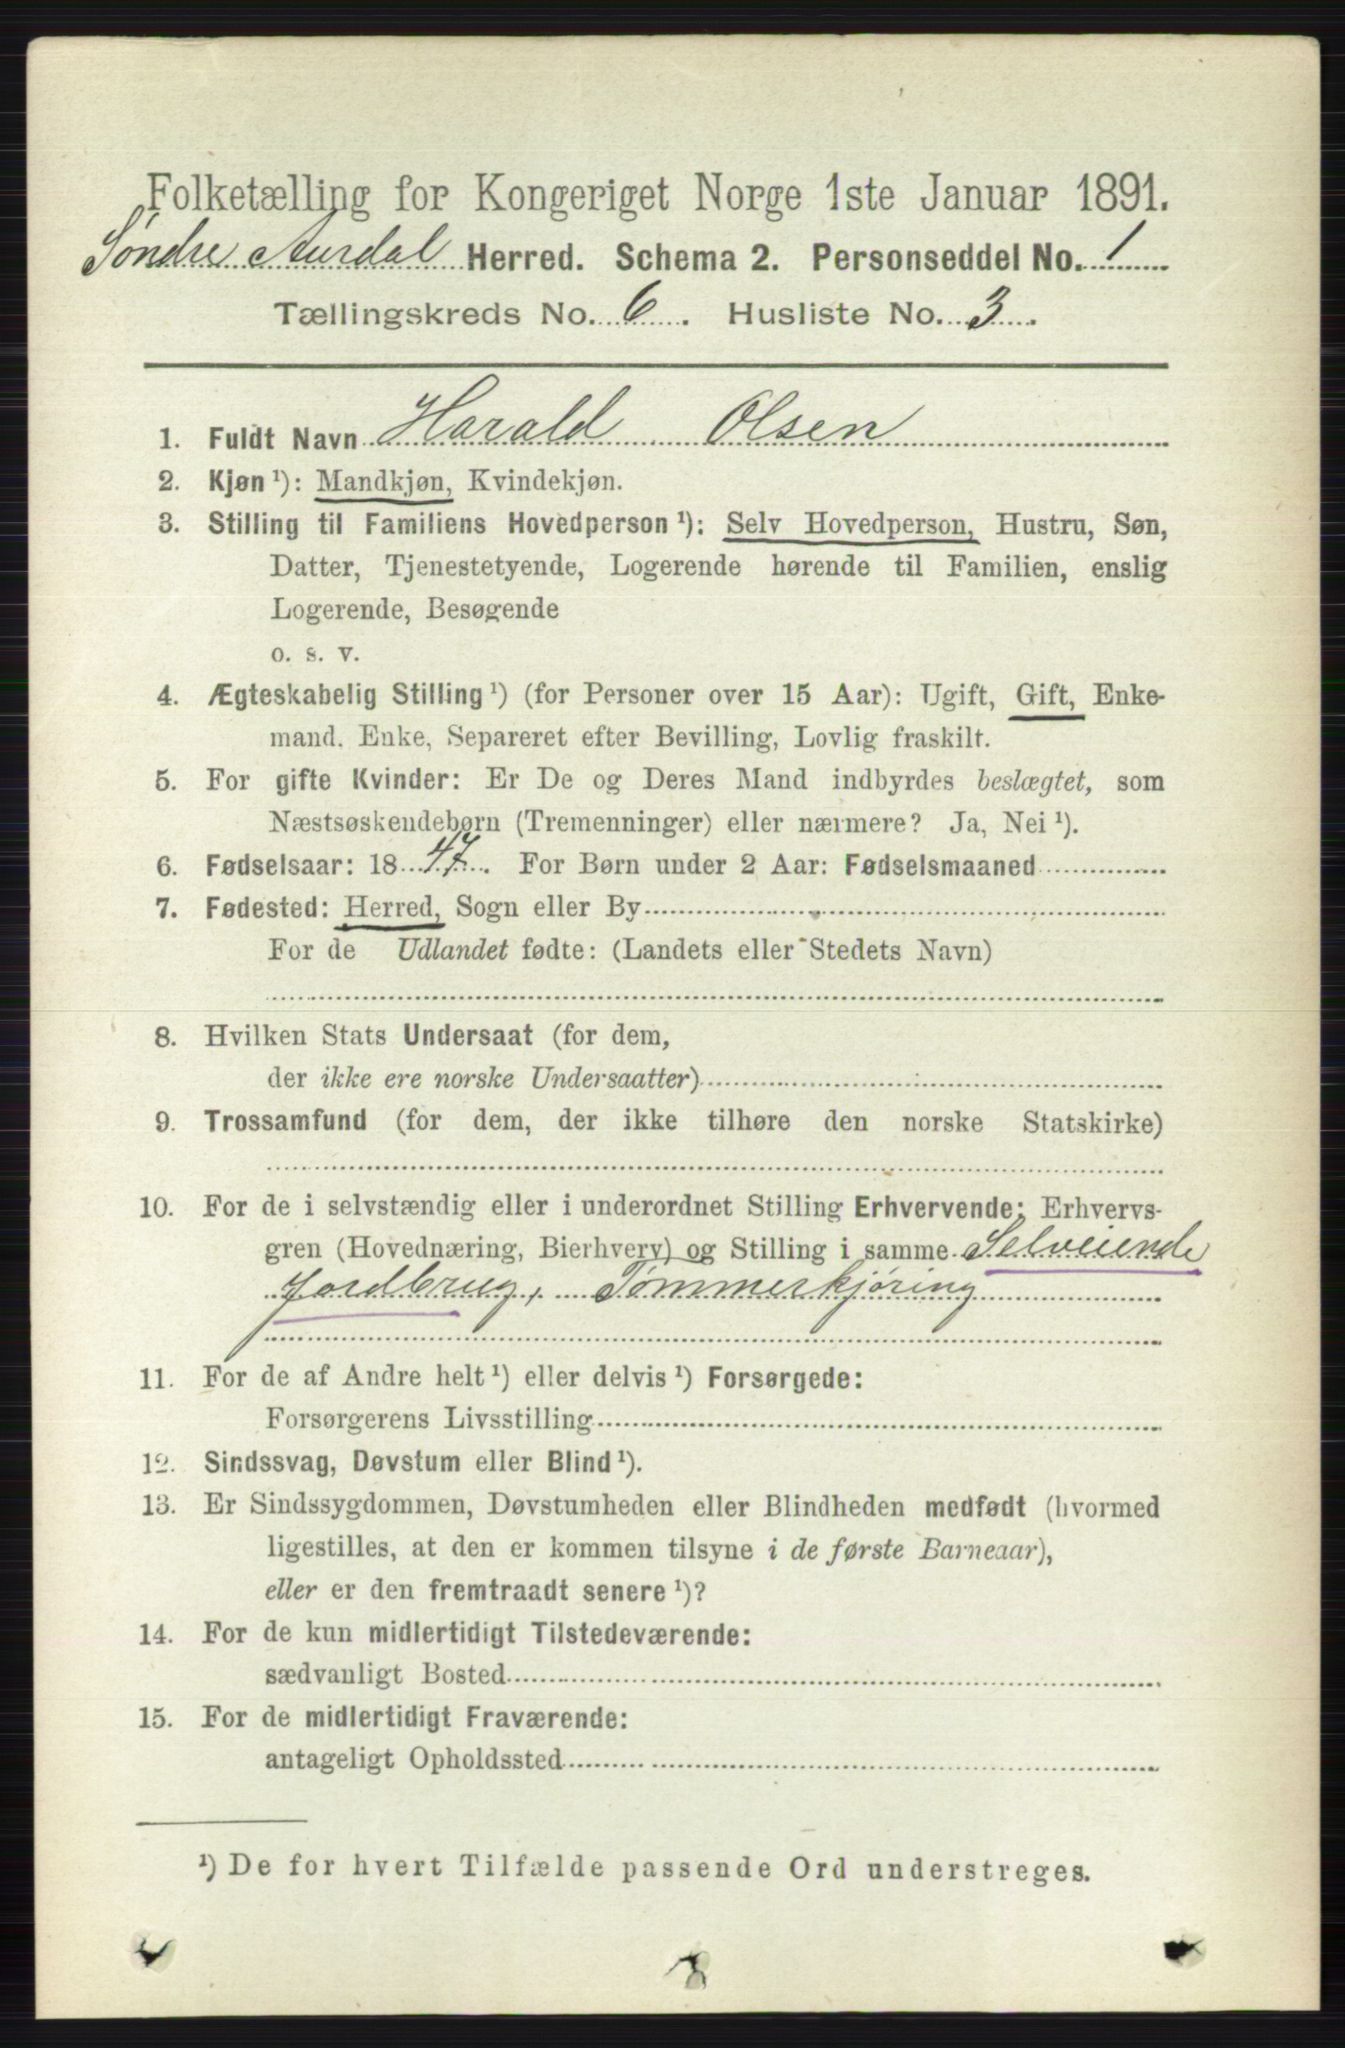 Folketælling for Kongeriget Norge 1ste Januar 1891.
Søndre Aurdal Herred. Schema 2. Personseddel No. 1
Tællingskreds No. 6. Husliste No. 3.
1. Fuldt Navn Harald Olsen
2. Kjøn ¹): Mandkjøn, Kvindekjøn.
3. Stilling til Familiens Hovedperson ¹): Selv Hovedperson, Hustru, Søn,
Datter, Tjenestetyende, Logerende hørende til Familien, enslig
Logerende, Besøgende
o. s. v.
4. Ægteskabelig Stilling ¹) (for Personer over 15 Aar): Ugift, Gift, Enke-
mand. Enke, Separeret efter Bevilling, Lovlig fraskilt.
5. For gifte Kvinder: Er De og Deres Mand indbyrdes beslægtet, som
Næstsøskendebørn (Tremenninger) eller nærmere? Ja, Nei ¹).
6. Fødselsaar: 1847. For Børn under 2 Aar: Fødselsmaaned
7. Fødested: Herred, Sogn eller By
For de Udlandet fødte: (Landets eller Stedets Navn)
8. Hvilken Stats Undersaat (for dem,
der ikke ere norske Undersaatter)
9. Trossamfund (for dem, der ikke tilhøre den norske Statskirke)
10. For de i selvstændig eller i underordnet Stilling Erhvervende: Erhvervs-
gren (Hovednæring, Bierhverv) og Stilling i samme Selveiende
Jordbrug, Tømmerkjøring
11. For de af Andre helt ¹) eller delvis ¹) Forsørgede:
Forsørgerens Livsstilling
12. Sindssvag, Døvstum eller Blind ¹).
13. Er Sindssygdommen, Døvstumheden eller Blindheden medfødt (hvormed
ligestilles, at den er kommen tilsyne i de første Barneaar),
eller er den fremtraadt senere ¹)?
14. For de kun midlertidigt Tilstedeværende:
sædvanligt Bosted
15. For de midlertidigt Fraværende:
antageligt Opholdssted
¹) De for hvert Tilfælde passende Ord understreges.